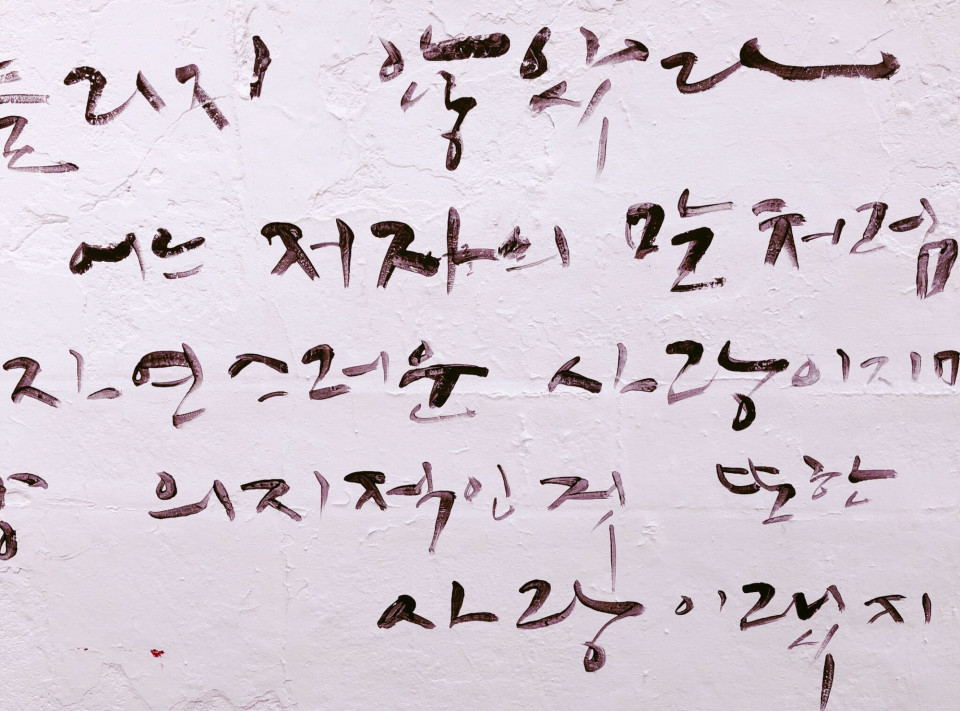 않았다
저자의 말처럼
자연스러운 사랑이지
의지적인 것 또한
사랑이랬지